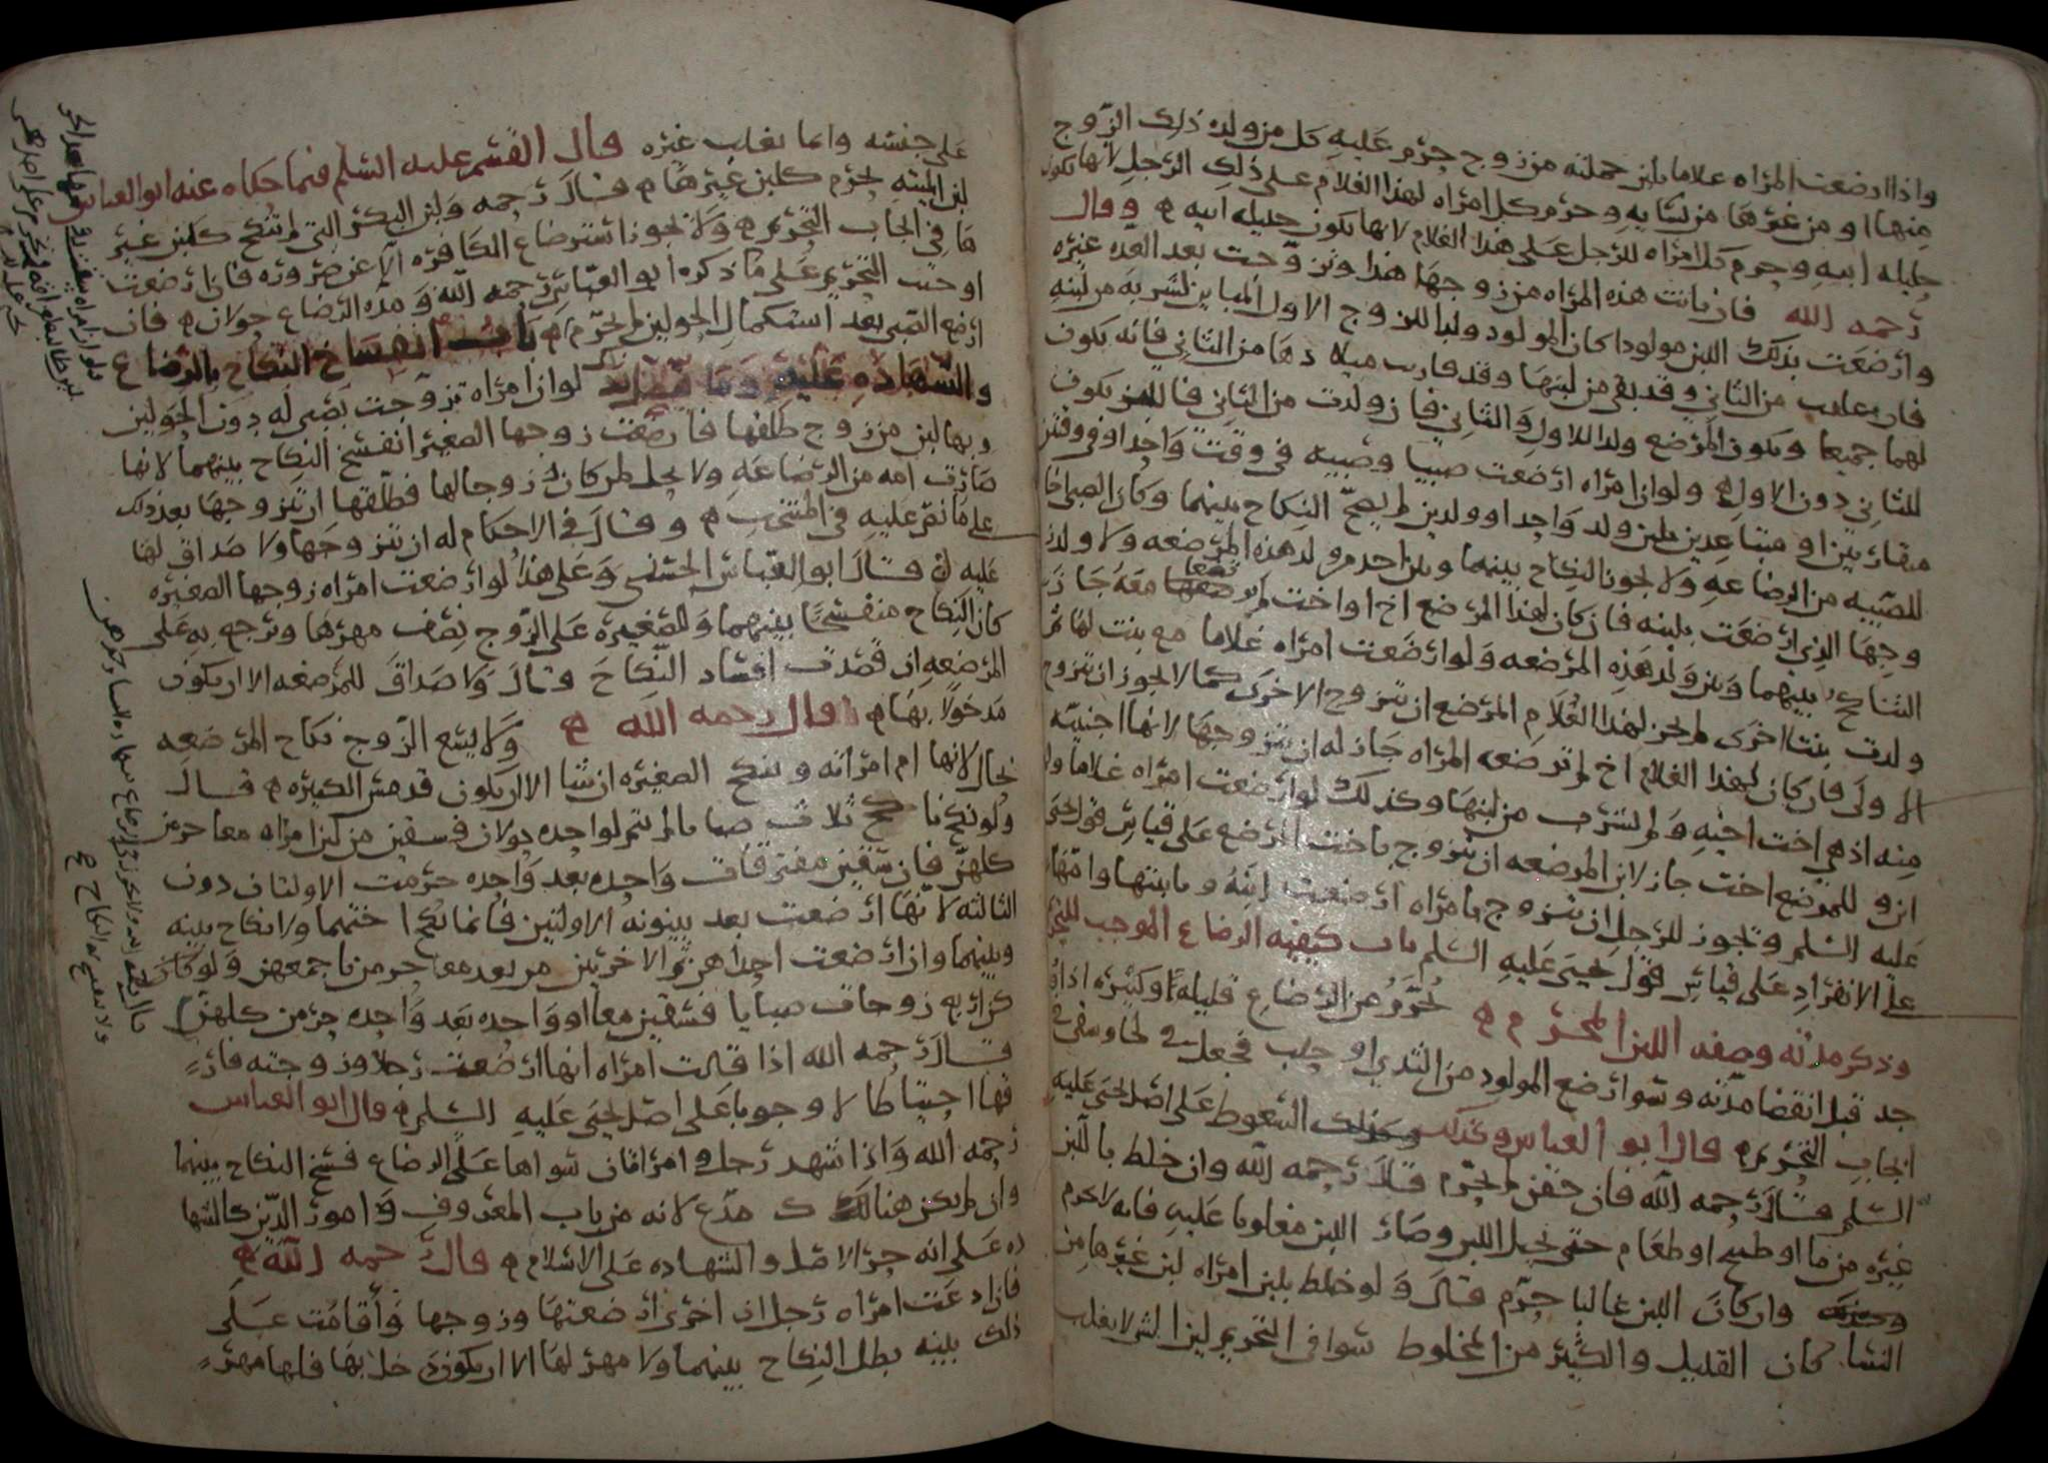 واذا ارضعت المراه غلاما بلبن حملته من زوج حرم عليه كل من ولده ذلك الزوج
منها او من غيرها من نسايه وحرم كل امراه لهذا الغلام على ذلك الرجل لانها تكون
حليله ابنه وحرم كل امراه للرجل على هذا الغلام لانها تكون حليله ابيه وقال
رحمه الله فان بانت هذه المراه من زوجها هذا وتزوجت بعد العده غيره
وارضعت بذلك اللبن مولودا كان المولود ولدا للزوج الاول لشربه من لبنه
من الثاني وقد بقي من لبنها وقد قارب من الثاني فانه يكون
لهما جميعا ويكون المرضع ولدا للاول والثاني فان ولدت من الثاني فاللبن يكون
للثاني دون الاول ولو ان امراه ارضعت صبيا وصبيه في وقت واحد او في وقتين
متقاربين او متباعدين بلبن ولد واحد او ولدين لم يصح النكاح بينهما وكان الصبي اخا
للصبيه من الرضاعه ولا يجوز النكاح بينهما وبين احد من ولد هذه المرضعه ولا ولد
زوجها الذي ارضعت بلبنه فان كان لهذا المرضع اخ او اخت لم معه جاز
التناكح بينهما وبين ولد هذه المرضعه ولو ارضعت امراه غلاما مع بنت لها ثم
ولدت بنتا اخرى لم يجز لهذا الغلام المرضع ان يتزوج الاخرى كما لا يجوز ان يتزوج
الاولى فان كان لهذا الغلام اخ لم ترضعه المراه جاز له ان يتزوجها لانها اجنبيه
منه اذ هي اخت اخيه ولم تشرب من لبنها وكذلك لو ارضعت امراه غلاما
وللمرضع اخت جاز لابن المرضعه ان يتزوج باخت المرضع على قياس قول يحيى
عليه السلم ويجوز للرجل ان يتزوج بامراه ارضعت ابنه وبابنتها وامها
على الانفراد على قياس قول يحيى عليه السلم باب كيفيه الرضاع الموجب للتحريم
وذكر مدته وصفه اللبن المحرم يحرم من الرضاع قليله وكثيره اذا
قبل انقضا مدته وسوا رضع المولود من الثدي او حلب فجعل في
ايجاب التحريم قال ابو العباس وكذلك السعوط على اصل يحيى عليه
السلم قال رحمه الله فان حقن لم يحرم قال رحمه الله وان خلط باللبن
غيره من ما او طبيخ او طعام حتى وصار اللبن مغلوبا عليه فانه لا يحرم
وان كان اللبن غالبا حرم قال ولو خلط بلبن امراه لبن غيرها من
النسا كان القليل والكثير من المخلوط سوا في التحريم لان الشي لا يغلب
على جنسه وانما يغلب غيره قال القسم عليه السلم فيما حكاه عنه ابو العباس
لبن الميته يحرم كلبن غيرها قال رحمه ولبن البكر التي لم تنكح كلبن غير
ها في ايجاب التحريم ولا يجوز استرضاع الكافره الا عن ضروره فان ارضعت
اوجب التحريم على ما ذكره ابو العباس رحمه الله ومده الرضاع حولان فان
ارضع الصبي بعد استكمال الحولين لم يحرم باب انفساخ النكاح بالرضاع
والشهاده عليه وما لو ان امراه تزوجت بصبي له دون الحولين
وبها لبن من زوج طلقها فارضعت زوجها الصغير انفسخ النكاح بينهما لانها
صارت امه من الرضاعه ولا يحل لمن كان زوجا لها فطلقها ان يتزوجها بعد ذلك
على ما نص عليه في المنتخب وقال في الاحكام له ان يتزوجها ولا صداق لها
عليه قال ابو العباس الحسني وعلى هذا لو ارضعت امراه زوجها الصغيره
كان النكاح منفسخا بينهما وللصغيره على الزوج نصف مهرها ويرجع به على
المرضعه ان قصدت افساد النكاح قال ولا صداق للمرضعه الا ان يكون
مدخولا بها قال رحمه الله ولا يسع الزوج نكاح المرضعه
بحال لانها ام امراته وينكح الصغيره ان شا الا ان يكون قد مس الكبيره قال
ولو نكح ثلاث صبايا لم يتم لواحده حولان فسقين من لبن امراه معا حرمن
كلهن فان سقين مفترقات واحده بعد واحده حرمت الاولتان دون
الثالثه لانها ارضعت بعد بينونه الاولتين فانما نكح اختهما ولا نكاح بينه
وبينهما وان ارضعت احداهن والاخرتين من بعد معا حرمن باجمعهن ولو كان
كن اربع زوجات صبايا فسقين معا او واحده بعد واحده حرمن كلهن
قال رحمه الله اذا قالت امراه انها ارضعت رجلا وزوجته فارق
قها احتياطا لا وجوبا على اصل يحيى عليه السلم قال ابو العباس
رحمه الله واذا شهد رجل وامراتان سواها على الرضاع فسخ النكاح بينهما
وان لم يكن هنالك مدع لانه من باب المعروف وامور الدين كالشها
ده على انه حر الاصل والشهاده على الاسلام قال رحمه الله
فان ادعت امراه رجل ان اخرى ارضعتها وزوجها واقامت على
ذلك بينه بطل النكاح بينهما ولا مهر لها الا ان يكون دخل بها فلها مهر